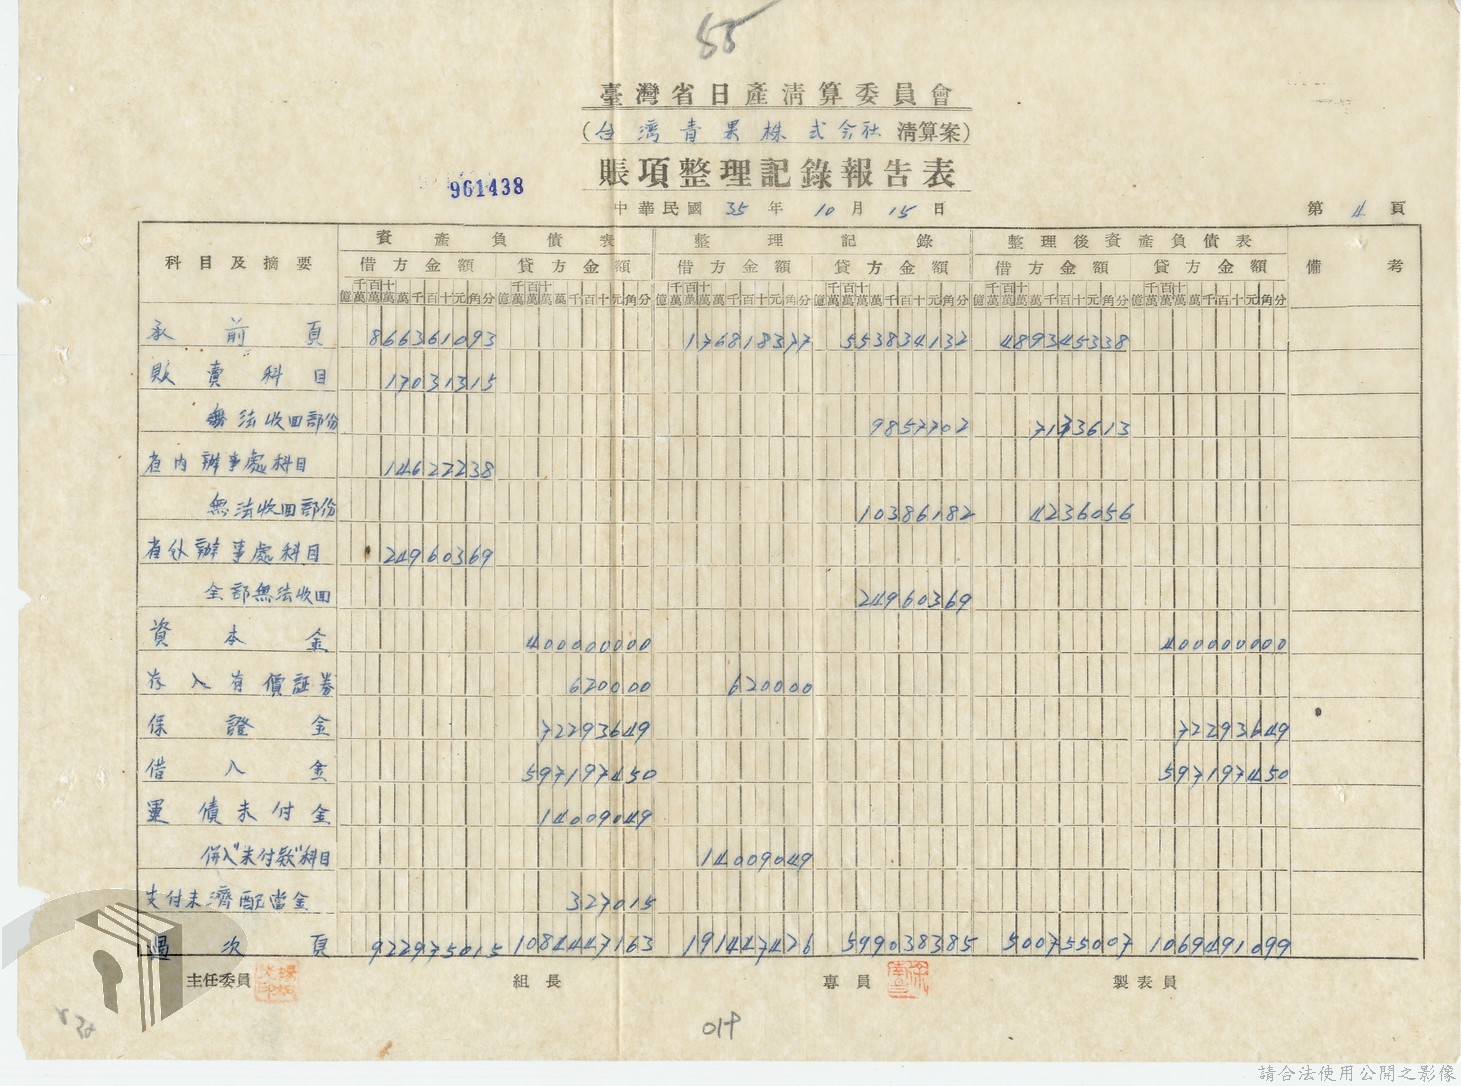 55
臺灣省日產清算委員會
(台灣青果株式会社 清算案)
賬項整理記錄報告表
961438
中華民國 35 年 10 月 15 日
第 4 頁
科目及摘要 資產負債表 整理記錄 整理後資產負債表 備考
借方金額 貸方金額 借方金額 貸方金額 借方金額 貸方金額
億千萬百萬十萬萬千百十元角分 億千萬百萬十萬萬千百十元角分 億千萬百萬十萬萬千百十元角分 億千萬百萬十萬萬千百十元角分 億千萬百萬十萬萬千百十元角分 億千萬百萬十萬萬千百十元角分
承前頁 866361093 176818377 553834132 489345338
販賣科目 17031315
無法收回部份 9857702 7173613
省内辦事處科目 14622238
無法收回部份 10386182 4236056
省外辦事處科目 24960369
全部無法收回 24960369
資本金 400000000 400000000
存入有價証券 620000 620000
保證金 72293649 72293649
借入金 597197450 597197450
債未付金 14009049
併入"未付款"科目 14009049
支付未濟配當金 327015
過次頁 922975015 1084447163 191447426 599038385 500755007 1069491099
主任委員 組長 專員 製表員
019
請合法使用公開之影像